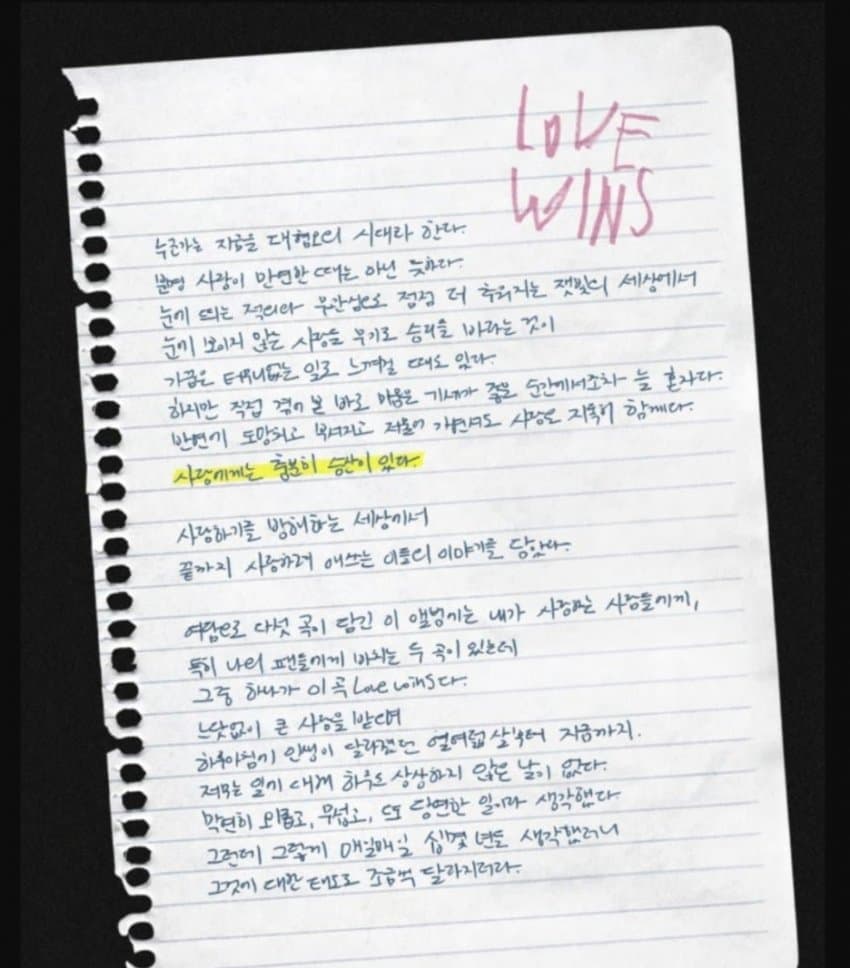 LOVE
WINS
누군가는 지금을 대혐오의 시대라 한다.
분명 사랑이 만연한 때는 아닌 듯하다.
눈에 띄는 적의와 무관심으로 점점 더 추워지는 잿빛의 세상에서
눈에 보이지 않는 사랑을 무기로 승리를 바라는 것이
가끔은 터무니없는 일로 느껴질 때도 있다.
하지만 직접 겪어 본 바로 미움은 기세가 좋은 순간에서조차 늘 혼자다.
반면에 도망치고 부서지고 저물어 가면서도 사랑은 지독히 함께다.
사랑에게는 충분히 승산이 있다.
사랑하기를 방해하는 세상에서
끝까지 사랑하려 애쓰는 이들의 이야기를 담았다.
여담으로 다섯 곡이 담긴 이 앨범에는 내가 사랑하는 사람들에게,
특히 나의 팬들에게 바치는 두 곡이 있는데
그중 하나가 이 곡 Love wins다.
느닷없이 큰 사랑을 받으며
하루아침에 인생이 달라졌던 열여덟 살부터 지금까지.
저무는 일에 대해 하루도 상상하지 않은 날이 없다.
막연히 외롭고, 무섭고, 또 당연한 일이라 생각했다.
그런데 그렇게 매일매일 십몇 년을 생각했더니
그것에 대한 태도도 조금씩 달라지더라.